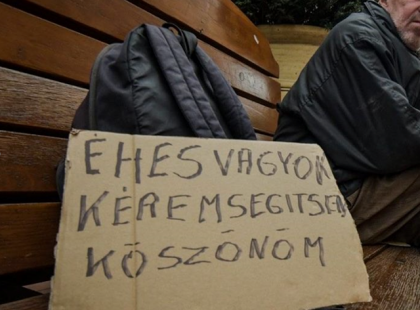 ÉHES VAGYOK
KÉREM SEGITSEN
KÖSZÖNÖM